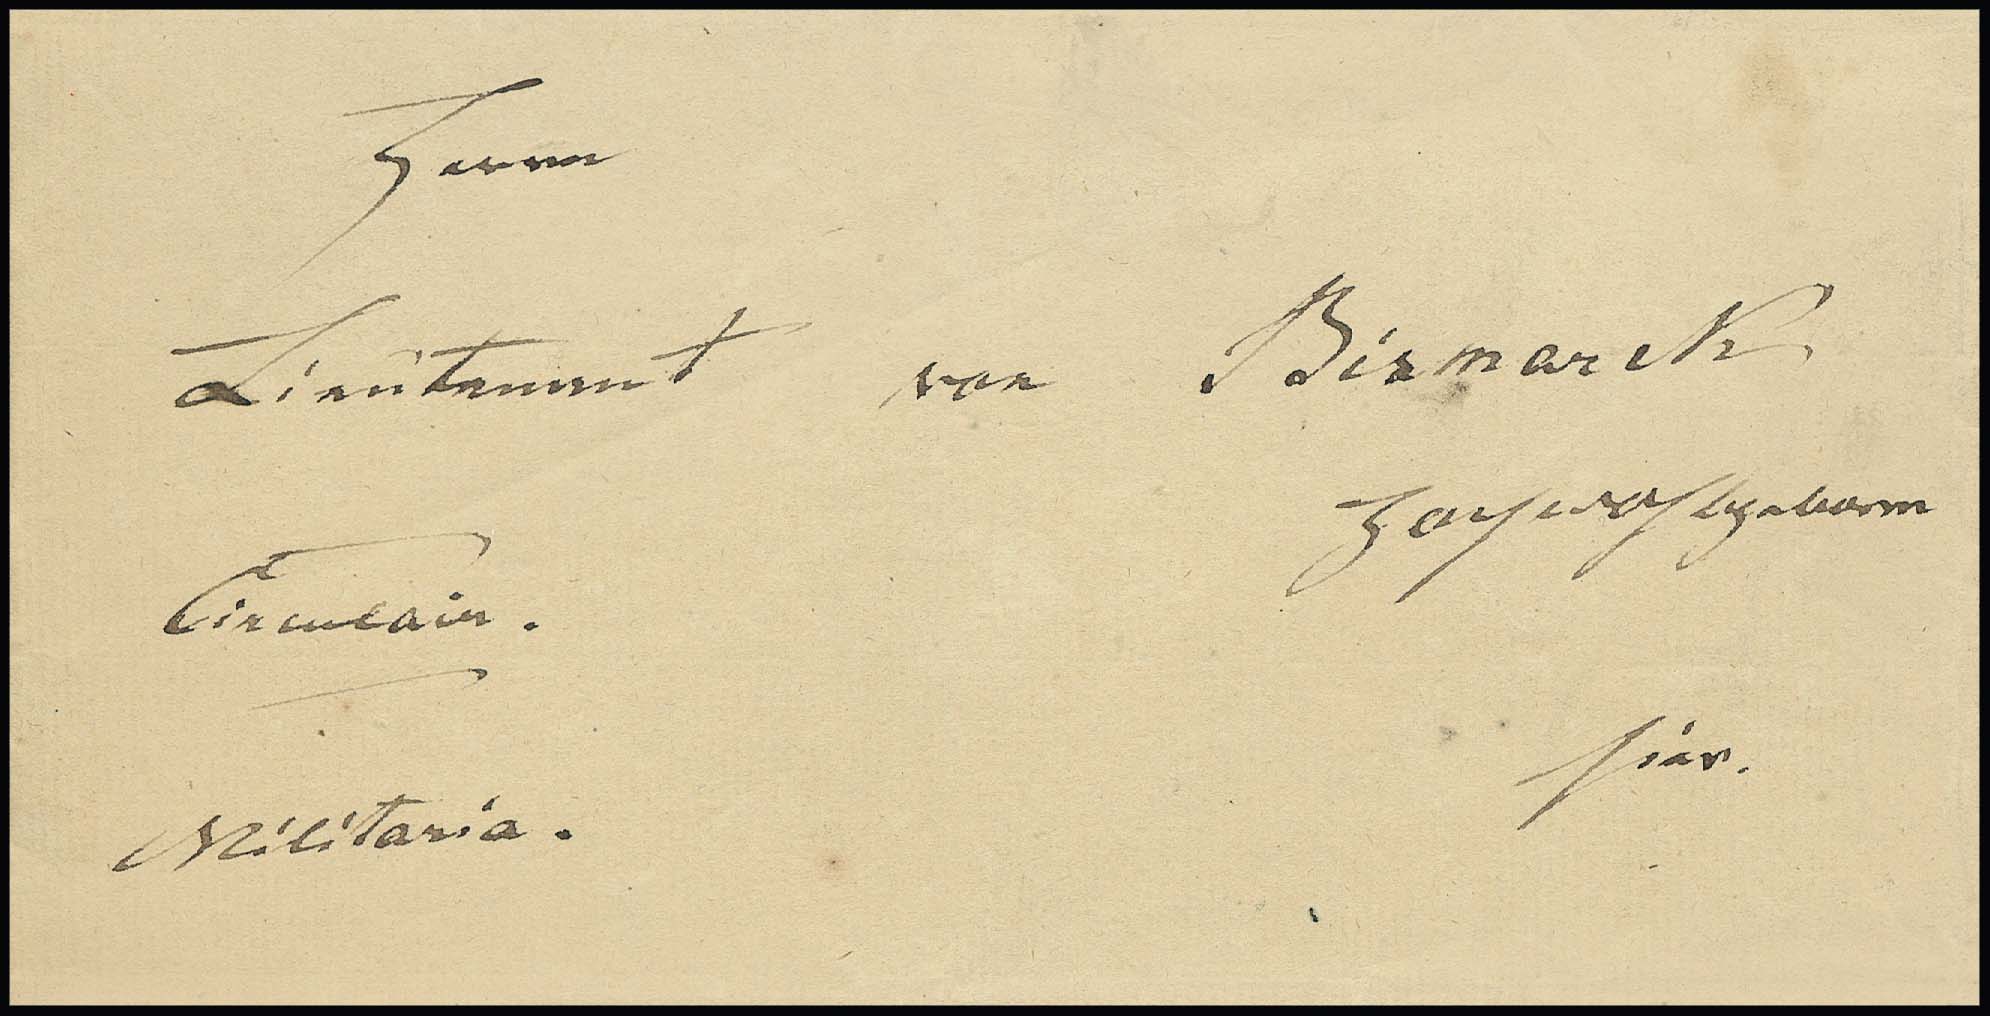 Herrn
Lieutenant von Bismarck
Hochwohlgeborn
Circulair.
hier.
Militaria.